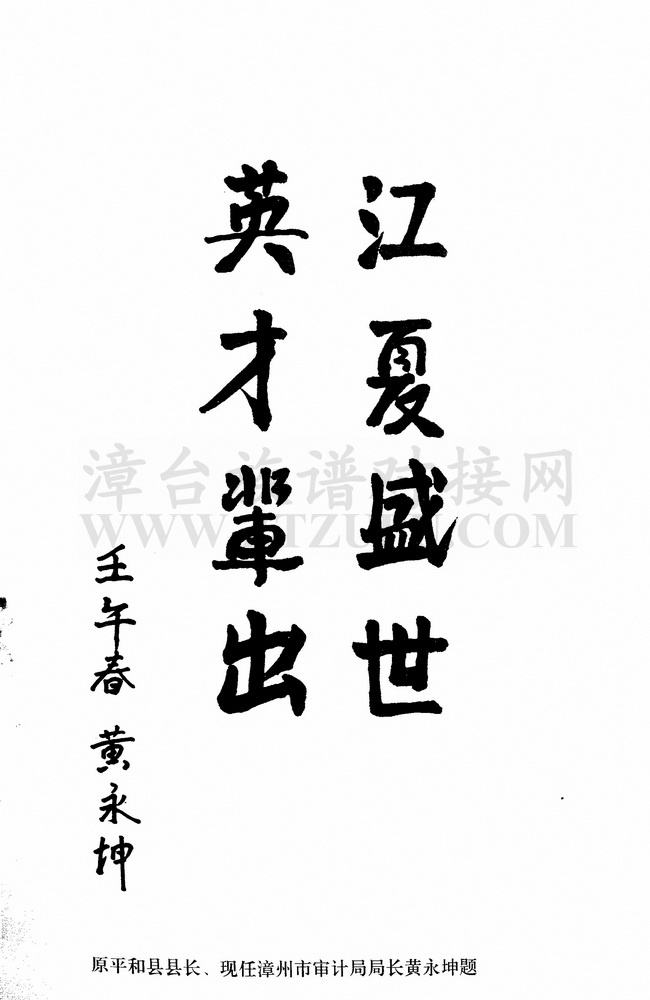 江夏盛世
英才輩出
壬午春 黄永坤
漳台族谱对接网
原平和县县长、现任漳州市审计局局长黄永坤题